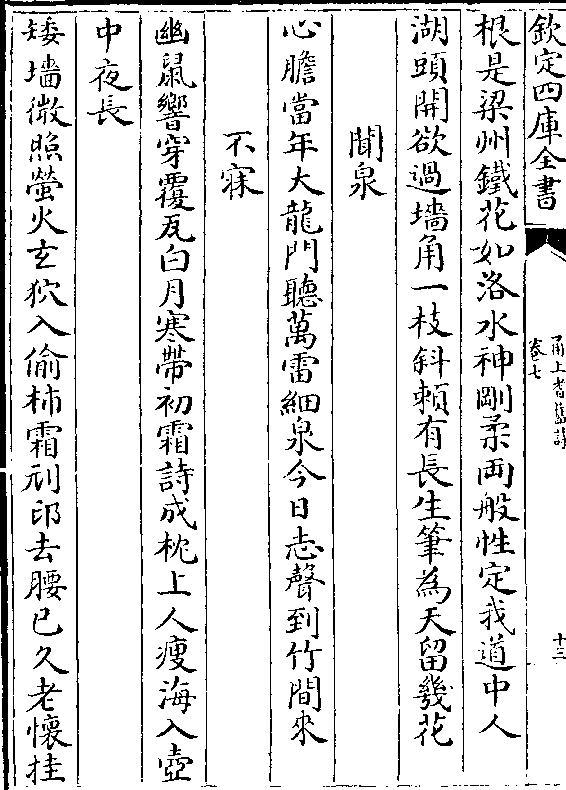 欽定四庫全書
甬上耆舊詩
卷七
十三
根是梁州鐵花如洛水神剛柔両般性定我道中人
湖頭開欲過墻角一枝斜頼有長生筆為天留幾花
聞泉
心膽當年大龍門聽萬雷細泉今日志聲到竹間來
不寐
幽鼠響穿覆瓦白月寒帶初霜詩成枕上人瘦海入壺
中夜長
矮墻微照螢火玄狖入偷柿霜刓印去腰已久老懷挂